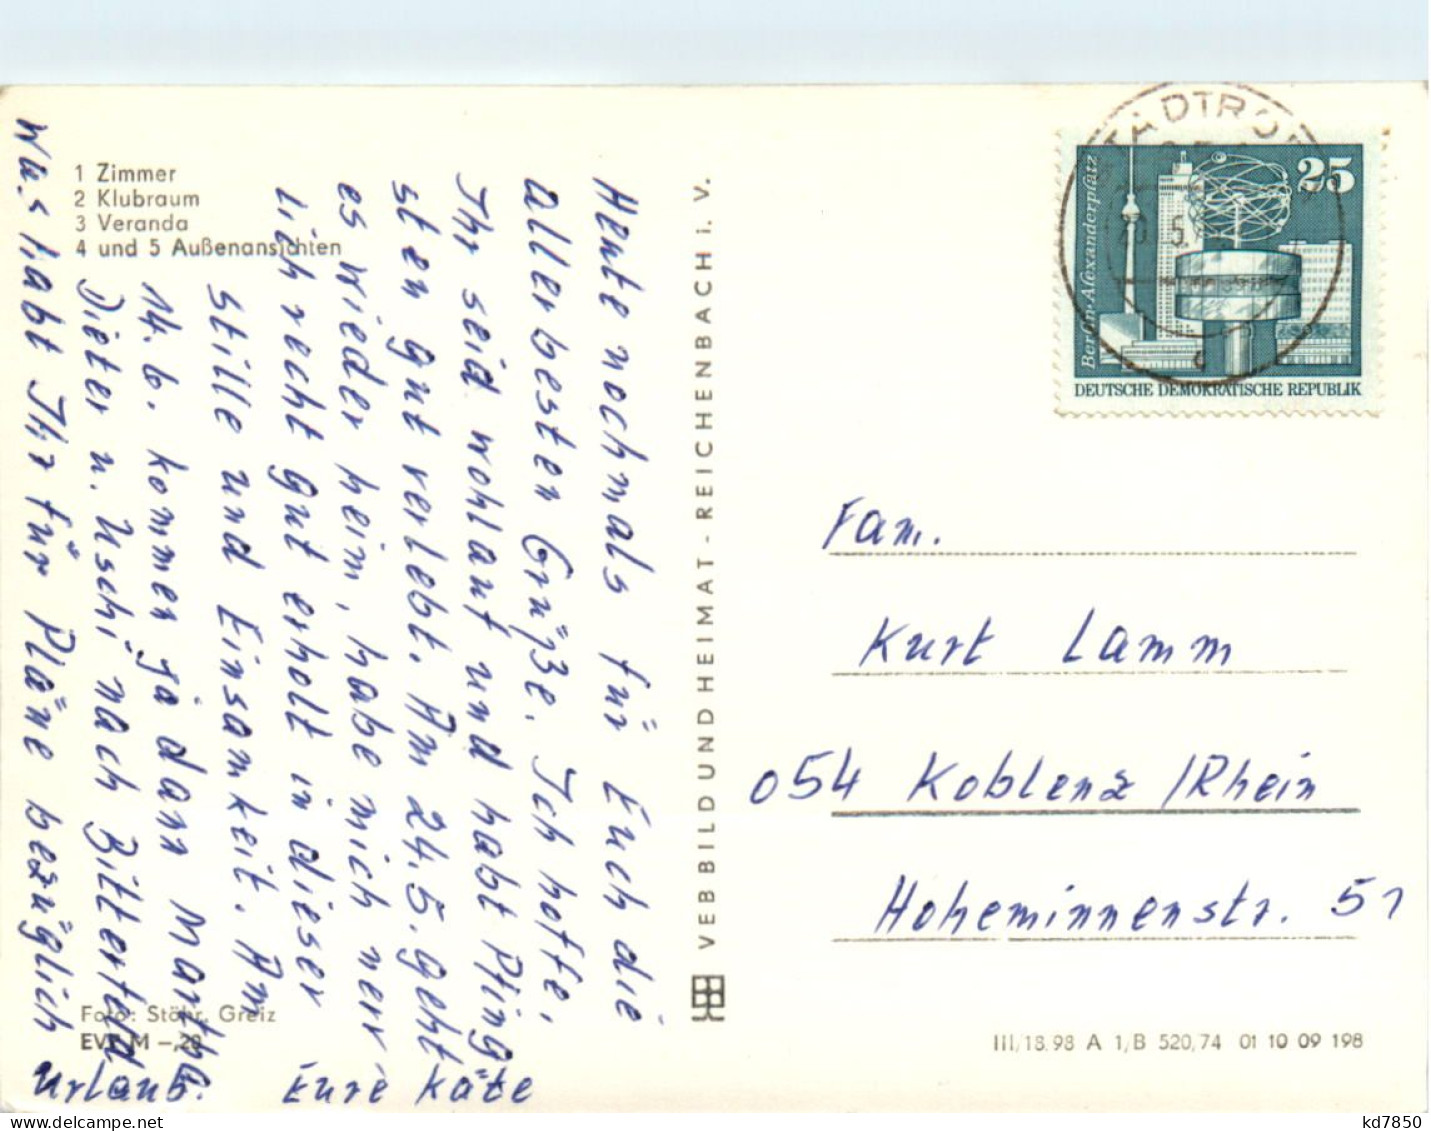 1 Zimmer
2 Klubraum
3 Veranda
4 und 5 Außenansichten
Heute nochmals für Euch die
allerbesten Grüße. Ich hoffe,
Ihr seid wohlauf und habt Pfing
sten gut verlebt. Am 24.5. geht
es wieder heim, habe mich nerv
lich recht gut erholt in dieser
Stille und Einsamkeit. Am
14. 6. kommen ja dann Martha
Dieter u. Uschi nach Bitterfeld
Was habt Ihr für Pläne bezüglich
Urlaub. Eure Käte
Foto: Stöhr, Greiz
EVP M -,20
VEB BILD UND HEIMAT - REICHENBACH i. V.
STADTRO
20.5.
c
25
Berlin-Alexanderplatz
DEUTSCHE DEMOKRATISCHE REPUBLIK
Fam.
Kurt Lamm
054 Koblenz /Rhein
Hoheminnenstr. 51
III/18.98 A 1/B 520/74 01 10 09 198
kd7850